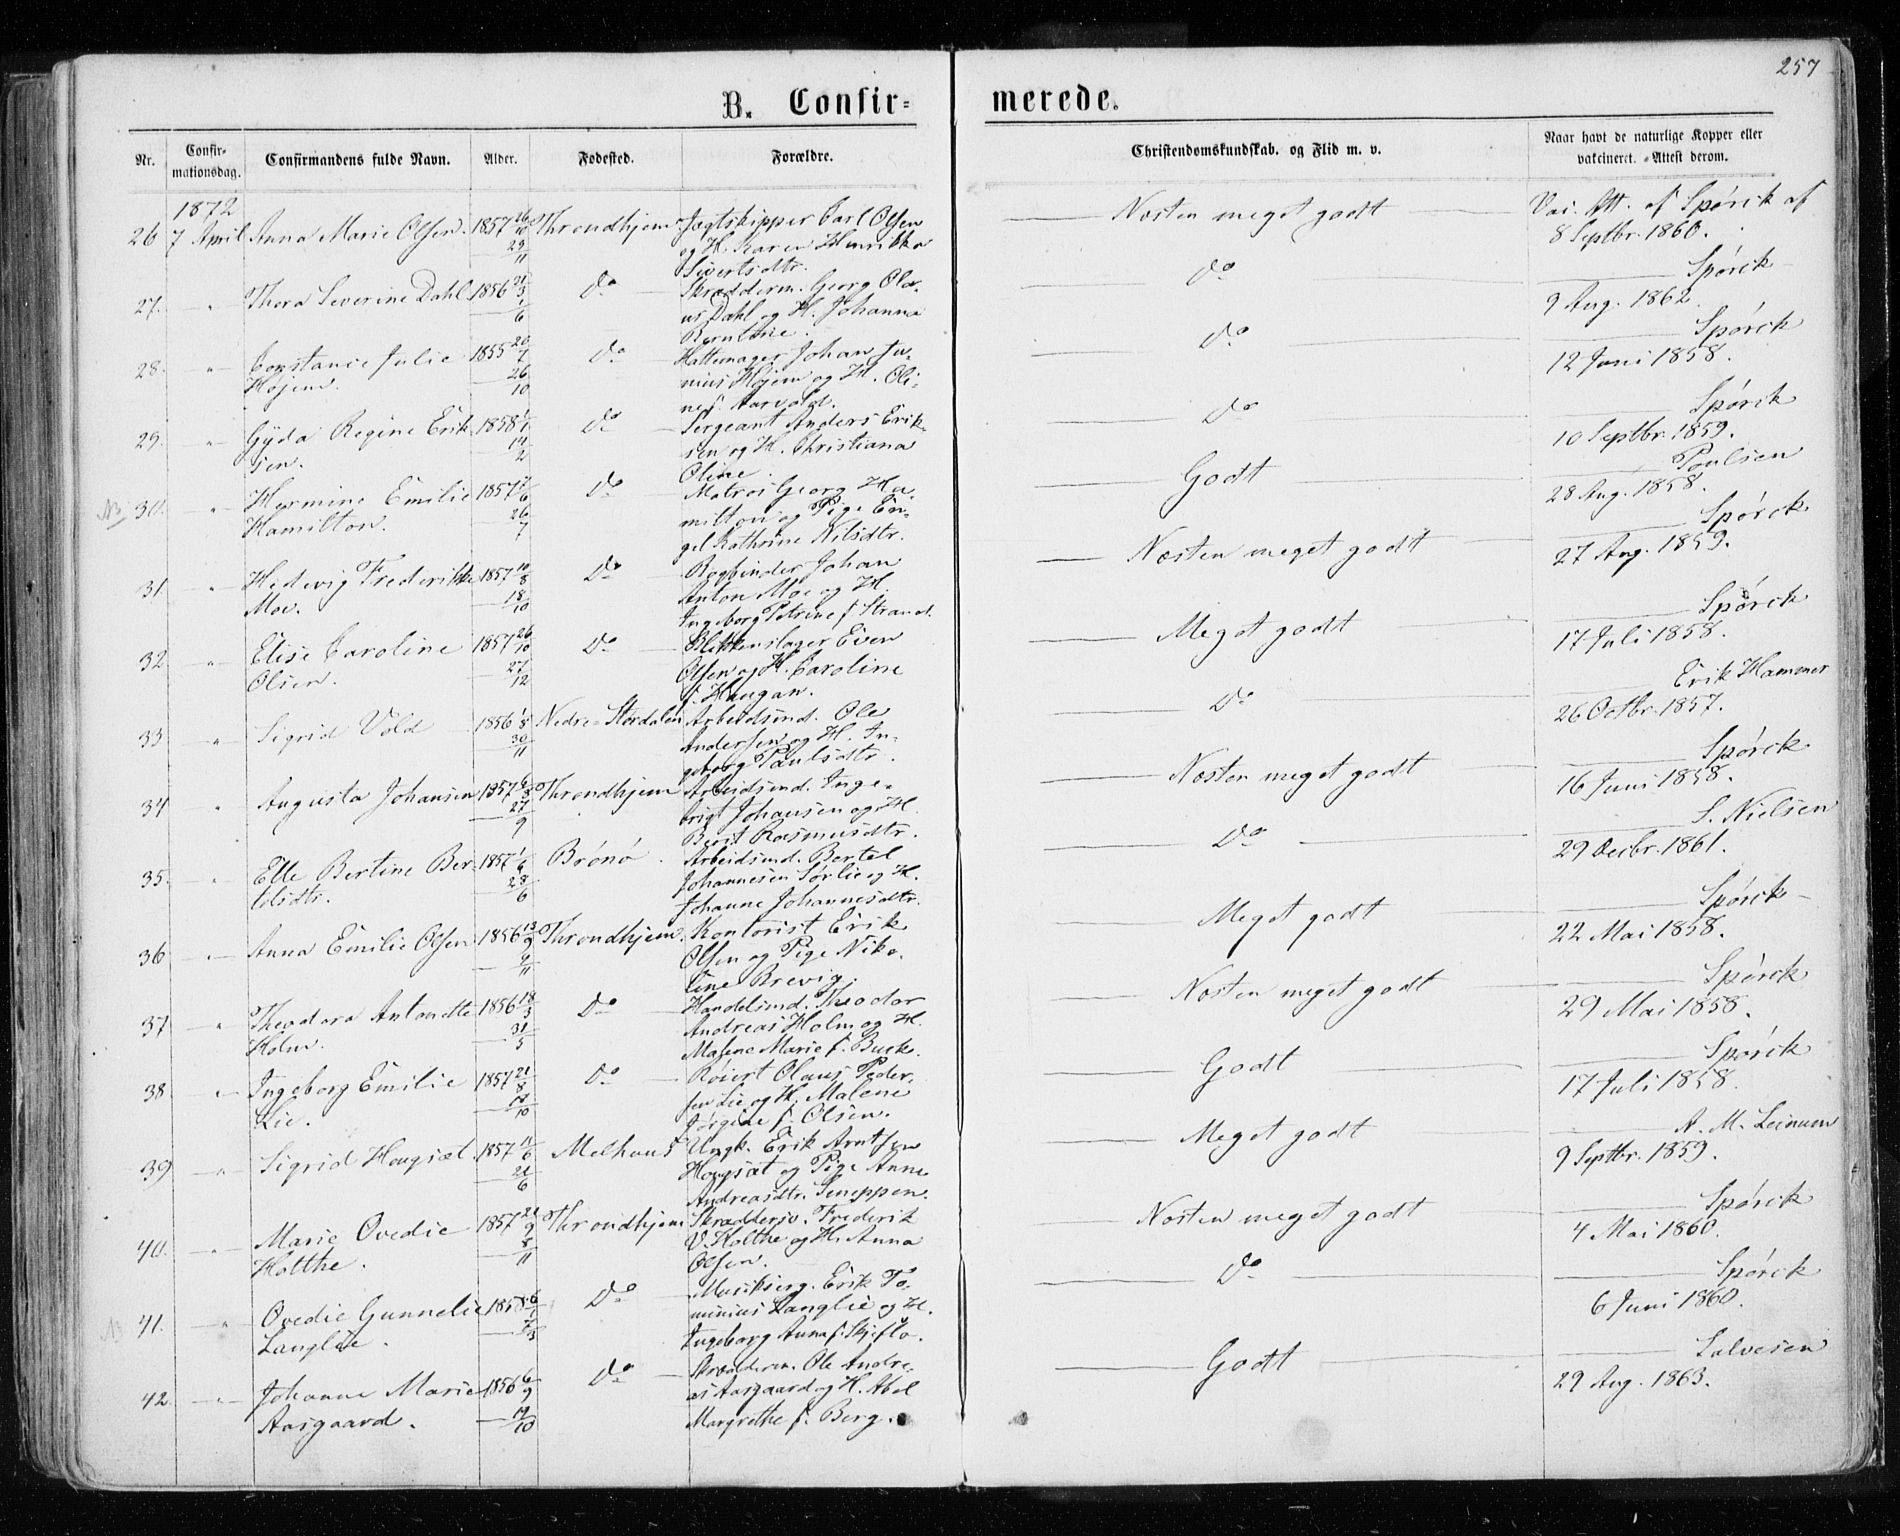 257
B. Confir-
merede.
Nr.
Confir-
mationsdag.
Confirmandens fulde Navn.
Alder.
Fødested.
Forældre.
Christendomskundskab. og Flid m. v.
Naar havt de naturlige Kopper eller
vakcineret. Attest derom.
1872
26 7 April Anna Marie Olsen. 1857 Throndhjem. Jægtskipper Carl Olsen
og H. Karen Henrikka
Sivertsdtr.
Næsten meget godt
Vac. Att. af Spørck af
8 Septbr. 1860.
27. " Thora Severine Dahl 1856 21/3 Do Skrædderm. Georg Ola-
us Dahl og H. Johanna
Berntine.
Do
Spørck
9 Aug. 1862.
28. " Constance Julie 1855 20/7 Do Hattemager Johan Ju-
Højem. 26/10 nius Højem og H. Oli-
ne f. Aarvold.
Do
Spørck
12 Juni 1858.
29. " Gyda Regine Erik- 1858 Do Sergeant Anders Erik-
sen. 14/2 sen og H. Christiana
Oline.
Do
Spørck
10 Septbr. 1859.
NB 30. " Hermine Emilie 1857 Do Matros Georg Ha-
Hamilton. 26/7 milton og Pige En-
gel Kathrine Nilsdtr.
Godt
Poulsen
28 Aug. 1858.
31 " Hedevig Frederikke 1857 10/8 Do Bogbinder Johan
Moe. 18/10 Anton Moe og H.
Ingeborg Petrine f. Strand.
Næsten meget godt
Spørck
27 Aug. 1859.
32. " Elise Caroline 1857 26/10 Do Blikkenslager Even
Olsen. 27/12 Olsen og H. Caroline
f. Haugan.
Meget godt
Spørck
17 Juli 1858.
33 " Sigrid Vold 1856 Nedre-Størdalen Arbeidsmd. Ole
30/11 Andersen og H. In-
geborg Paulsdtr.
Do
Erik Hammer
26 Octbr. 1857.
34 " Augusta Johansen 1857 6/8 Throndhjem Arbeidsmd. Inge-
27/9 brigt Johansen og H.
Berit Rasmusdtr.
Næsten meget godt
Spørck
16 Juni 1858.
35. " Elle Bertine Ber- 1857 Brønø. Arbeidsmd. Bertel
telsdtr. 28/6 Johannesen Sørlie og H.
Johanne Johannesdtr.
Do
S. Nielsen
29 Decbr. 1861.
36 " Anna Emilie Olsen 1856 Throndhjem. Kontorist Erik
9/11 Olsen og Pige Niko-
line Brevig.
Meget godt
Spørck
22 Mai 1858.
37 " Theodora Antonette 1856 18/3 Do Handelsmd. Theodor
Holm. 31/5 Andreas Holm og H.
Masene Marie f. Buck.
Næsten meget godt
Spørck
29 Mai 1858.
38 " Ingeborg Emilie 1857 21/8 Do Røiert Olaus Peder-
Lie. 18/10 sen Lie og H. Malene
Jørgine f. Olsen.
Godt
Spørck
17 Juli 1858.
39 " Sigrid Hougsæt. 1857 11/6 Melhuus Ungk. Erik Arntsen
21/6 Hougsæt og Pige Anne
Andreasdtr. Seneppen.
Meget godt
A. M. Leinum
9 Septbr. 1859.
40. " Marie Ovedie 1857 21/9 Throndhjem Skræddersv. Frederik
Holthe. 8/11 V. Holthe og H. Anna
Olsen.
Næsten meget godt
Spørck
4 Mai 1860.
NB 41. " Ovedie Gunnelie 1858 Do Musikserg. Erik To-
Langlie. minius Langlie og H.
Ingeborg Anna f. Skjeflo.
Do
Spørck
6 Juni 1860.
42 " Johanne Marie 1856 6/9 Do Skrædderm. Ole Andre-
Aasgaard. 19/10 as Aasgaard og H. Abel
Margrethe f. Berg.
Godt
Salvesen
29 Aug. 1863.